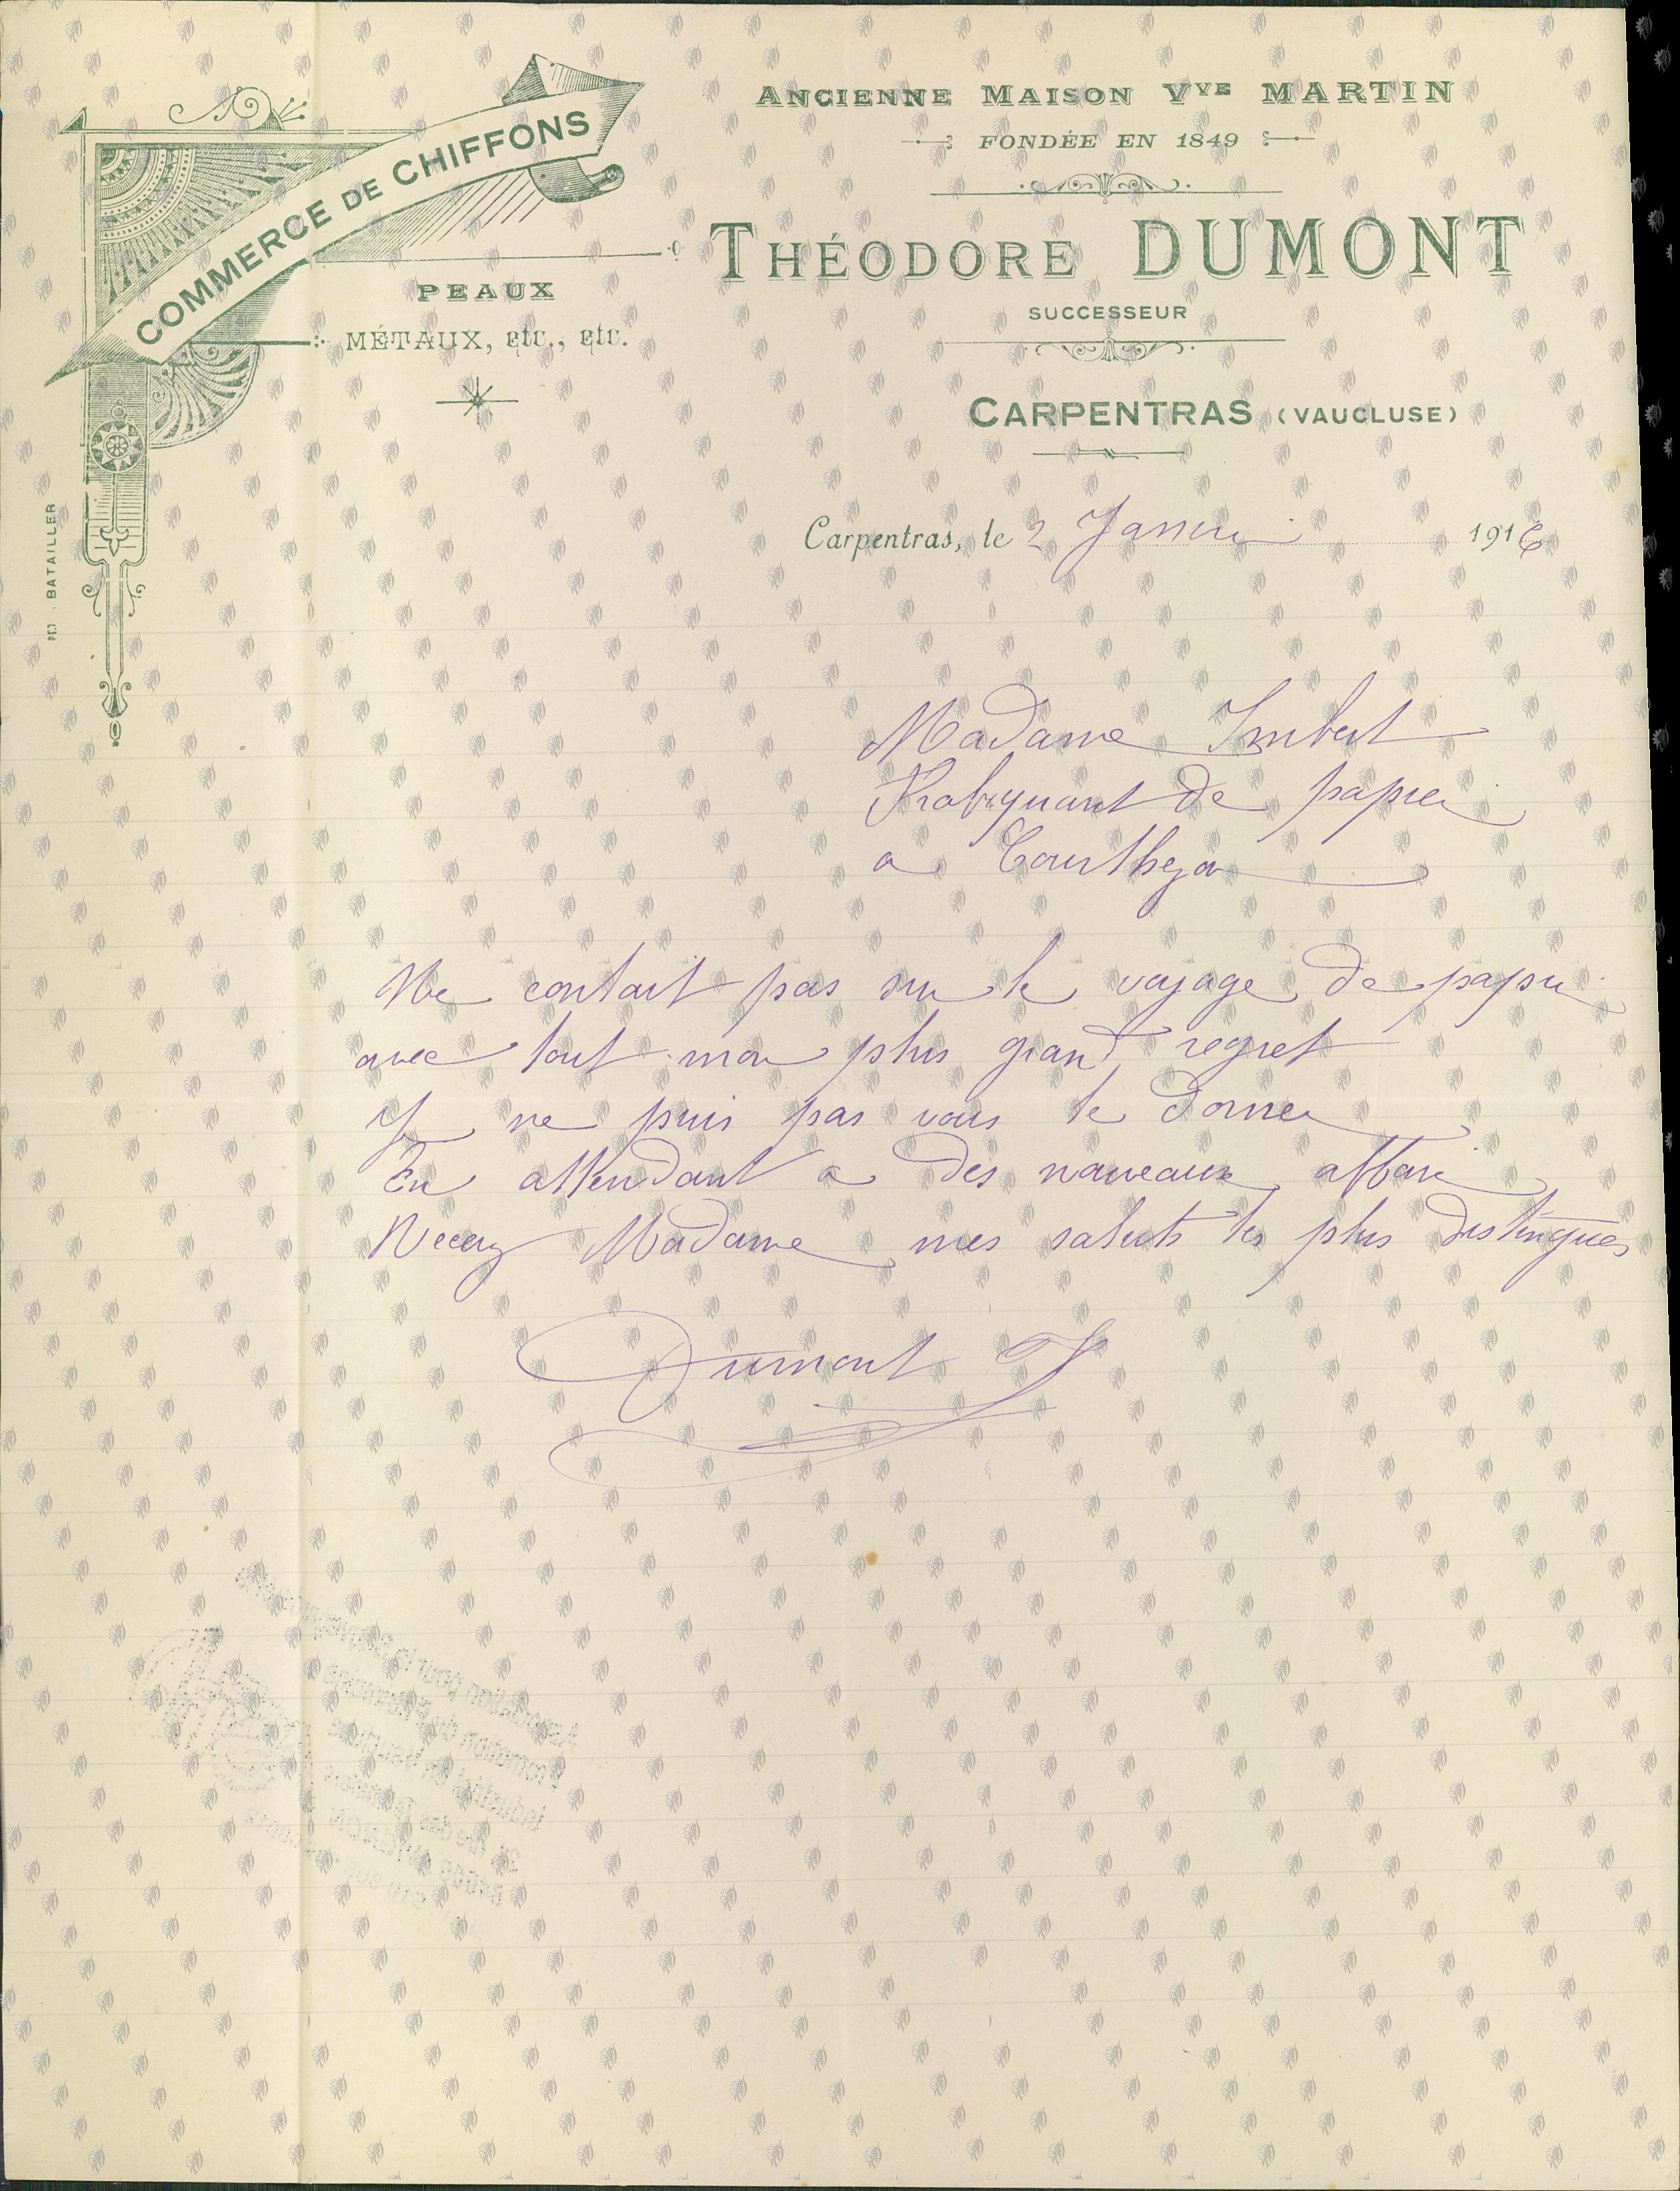 COMMERCE DE CHIFFONS
PEAUX
MÉTAUX, etc., etc.
ANCIENNE MAISON Vve MARTIN
FONDÉE EN 1849
THÉODORE DUMONT
SUCCESSEUR
CARPENTRAS (VAUCLUSE)
BATAILLER
Carpentras, le 2 Janvier 1916
Madame Imbert
Frabiquant de papier
a Courthezon
Ne contait pas sur le voyage de papier
avec tout mon plus grand regret
Je ne puis pas vous le donner
En attendant a des nouveaux affaire
Recevez Madame mes saluts les plus distingués
Dumont T
Association pour la
Promotion